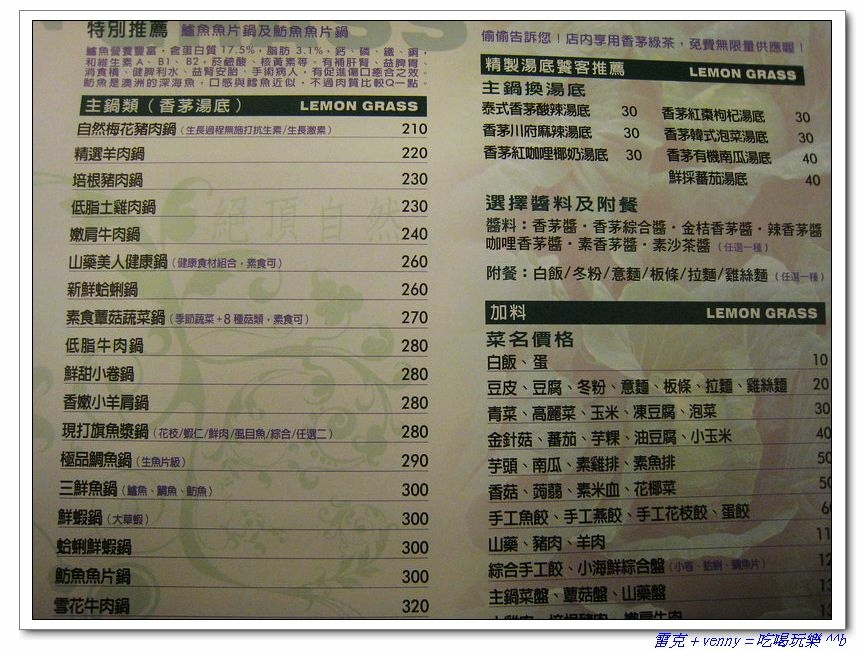 特別推薦 鱸魚魚片鍋及魴魚魚片鍋
鱸魚營養豐富，含蛋白質17.5%，脂肪3.1%，鈣、磷、鐵、銅，
和維生素A、B1、B2、菸鹼酸、核黃素等。有補肝腎、益脾胃、
消食積、健脾利水、益腎安胎、手術病人，有促進傷口癒合之效。
魴魚是澳洲的深海魚，口感與鱈魚近似，不過肉質比較Q一點。
主鍋類（香茅湯底） LEMON GRASS
自然梅花豬肉鍋（生長過程無施打抗生素/生長激素） 210
精選羊肉鍋 220
培根豬肉鍋 230
低脂土雞肉鍋 230
嫩肩牛肉鍋 240
山藥美人健康鍋（健康食材組合，素食可） 260
新鮮蛤蜊鍋 260
素食蕈菇蔬菜鍋（季節蔬菜+8種菇類，素食可） 270
低脂牛肉鍋 280
鮮甜小卷鍋 280
香嫩小羊肩鍋 280
現打旗魚漿鍋（花枝/蝦仁/鮮肉/虱目魚/綜合/任選二） 280
極品鯛魚鍋（生魚片級） 290
三鮮魚鍋（鱸魚、鯛魚、魴魚） 300
鮮蝦鍋（大草蝦） 300
蛤蜊鮮蝦鍋 300
魴魚魚片鍋 300
雪花牛肉鍋 320
絕頂自然
偷偷告訴您！店內享用香茅綠茶，免費無限量供應喔！
精製湯底饕客推薦 LEMON GRASS
主鍋換湯底
泰式香茅酸辣湯底 30 香茅紅棗枸杞湯底 30
香茅川府麻辣湯底 30 香茅韓式泡菜湯底 30
香茅紅咖哩椰奶湯底 30 香茅有機南瓜湯底 40
鮮採蕃茄湯底 40
選擇醬料及附餐
醬料：香茅醬・香茅綜合醬・金桔香茅醬・辣香茅醬
咖哩香茅醬・素香茅醬・素沙茶醬（任選一種）
附餐：白飯/冬粉/意麵/板條/拉麵/雞絲麵（任選一種）
加料 LEMON GRASS
菜名價格
白飯、蛋 10
豆皮、豆腐、冬粉、意麵、板條、拉麵、雞絲麵 20
青菜、高麗菜、玉米、凍豆腐、泡菜 30
金針菇、蕃茄、芋粿、油豆腐、小玉米 40
芋頭、南瓜、素雞排、素魚排 50
香菇、蒟蒻、素米血、花椰菜 50
手工魚餃、手工燕餃、手工花枝餃、蛋餃 60
山藥、豬肉、羊肉 11
綜合手工餃、小海鮮綜合盤（小卷、蛤蜊、鯛魚片） 12
主鍋菜盤、蕈菇盤、山藥盤 13
雷克+venny=吃喝玩樂 ^^b